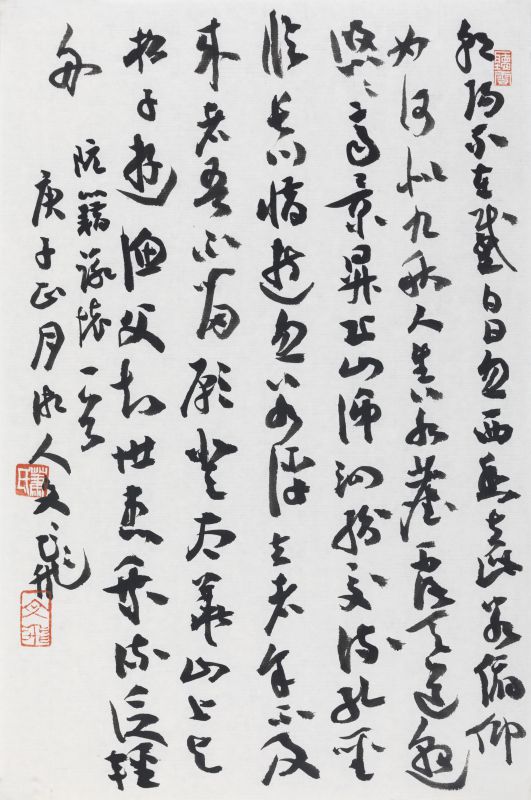 朝陽不再盛白日忽西幽去此若俯仰
如何似九秋人生若塵露天道邈
悠悠齊景昇丘山涕泗紛交流孔聖
臨長川惜逝忽若浮去者余不及
來者吾不留願登太華山上與
松子遊漁父知世患乘流泛輕
舟
阮籍詠懷一首
庚子正月湘人文飛
蕭氏
文飛